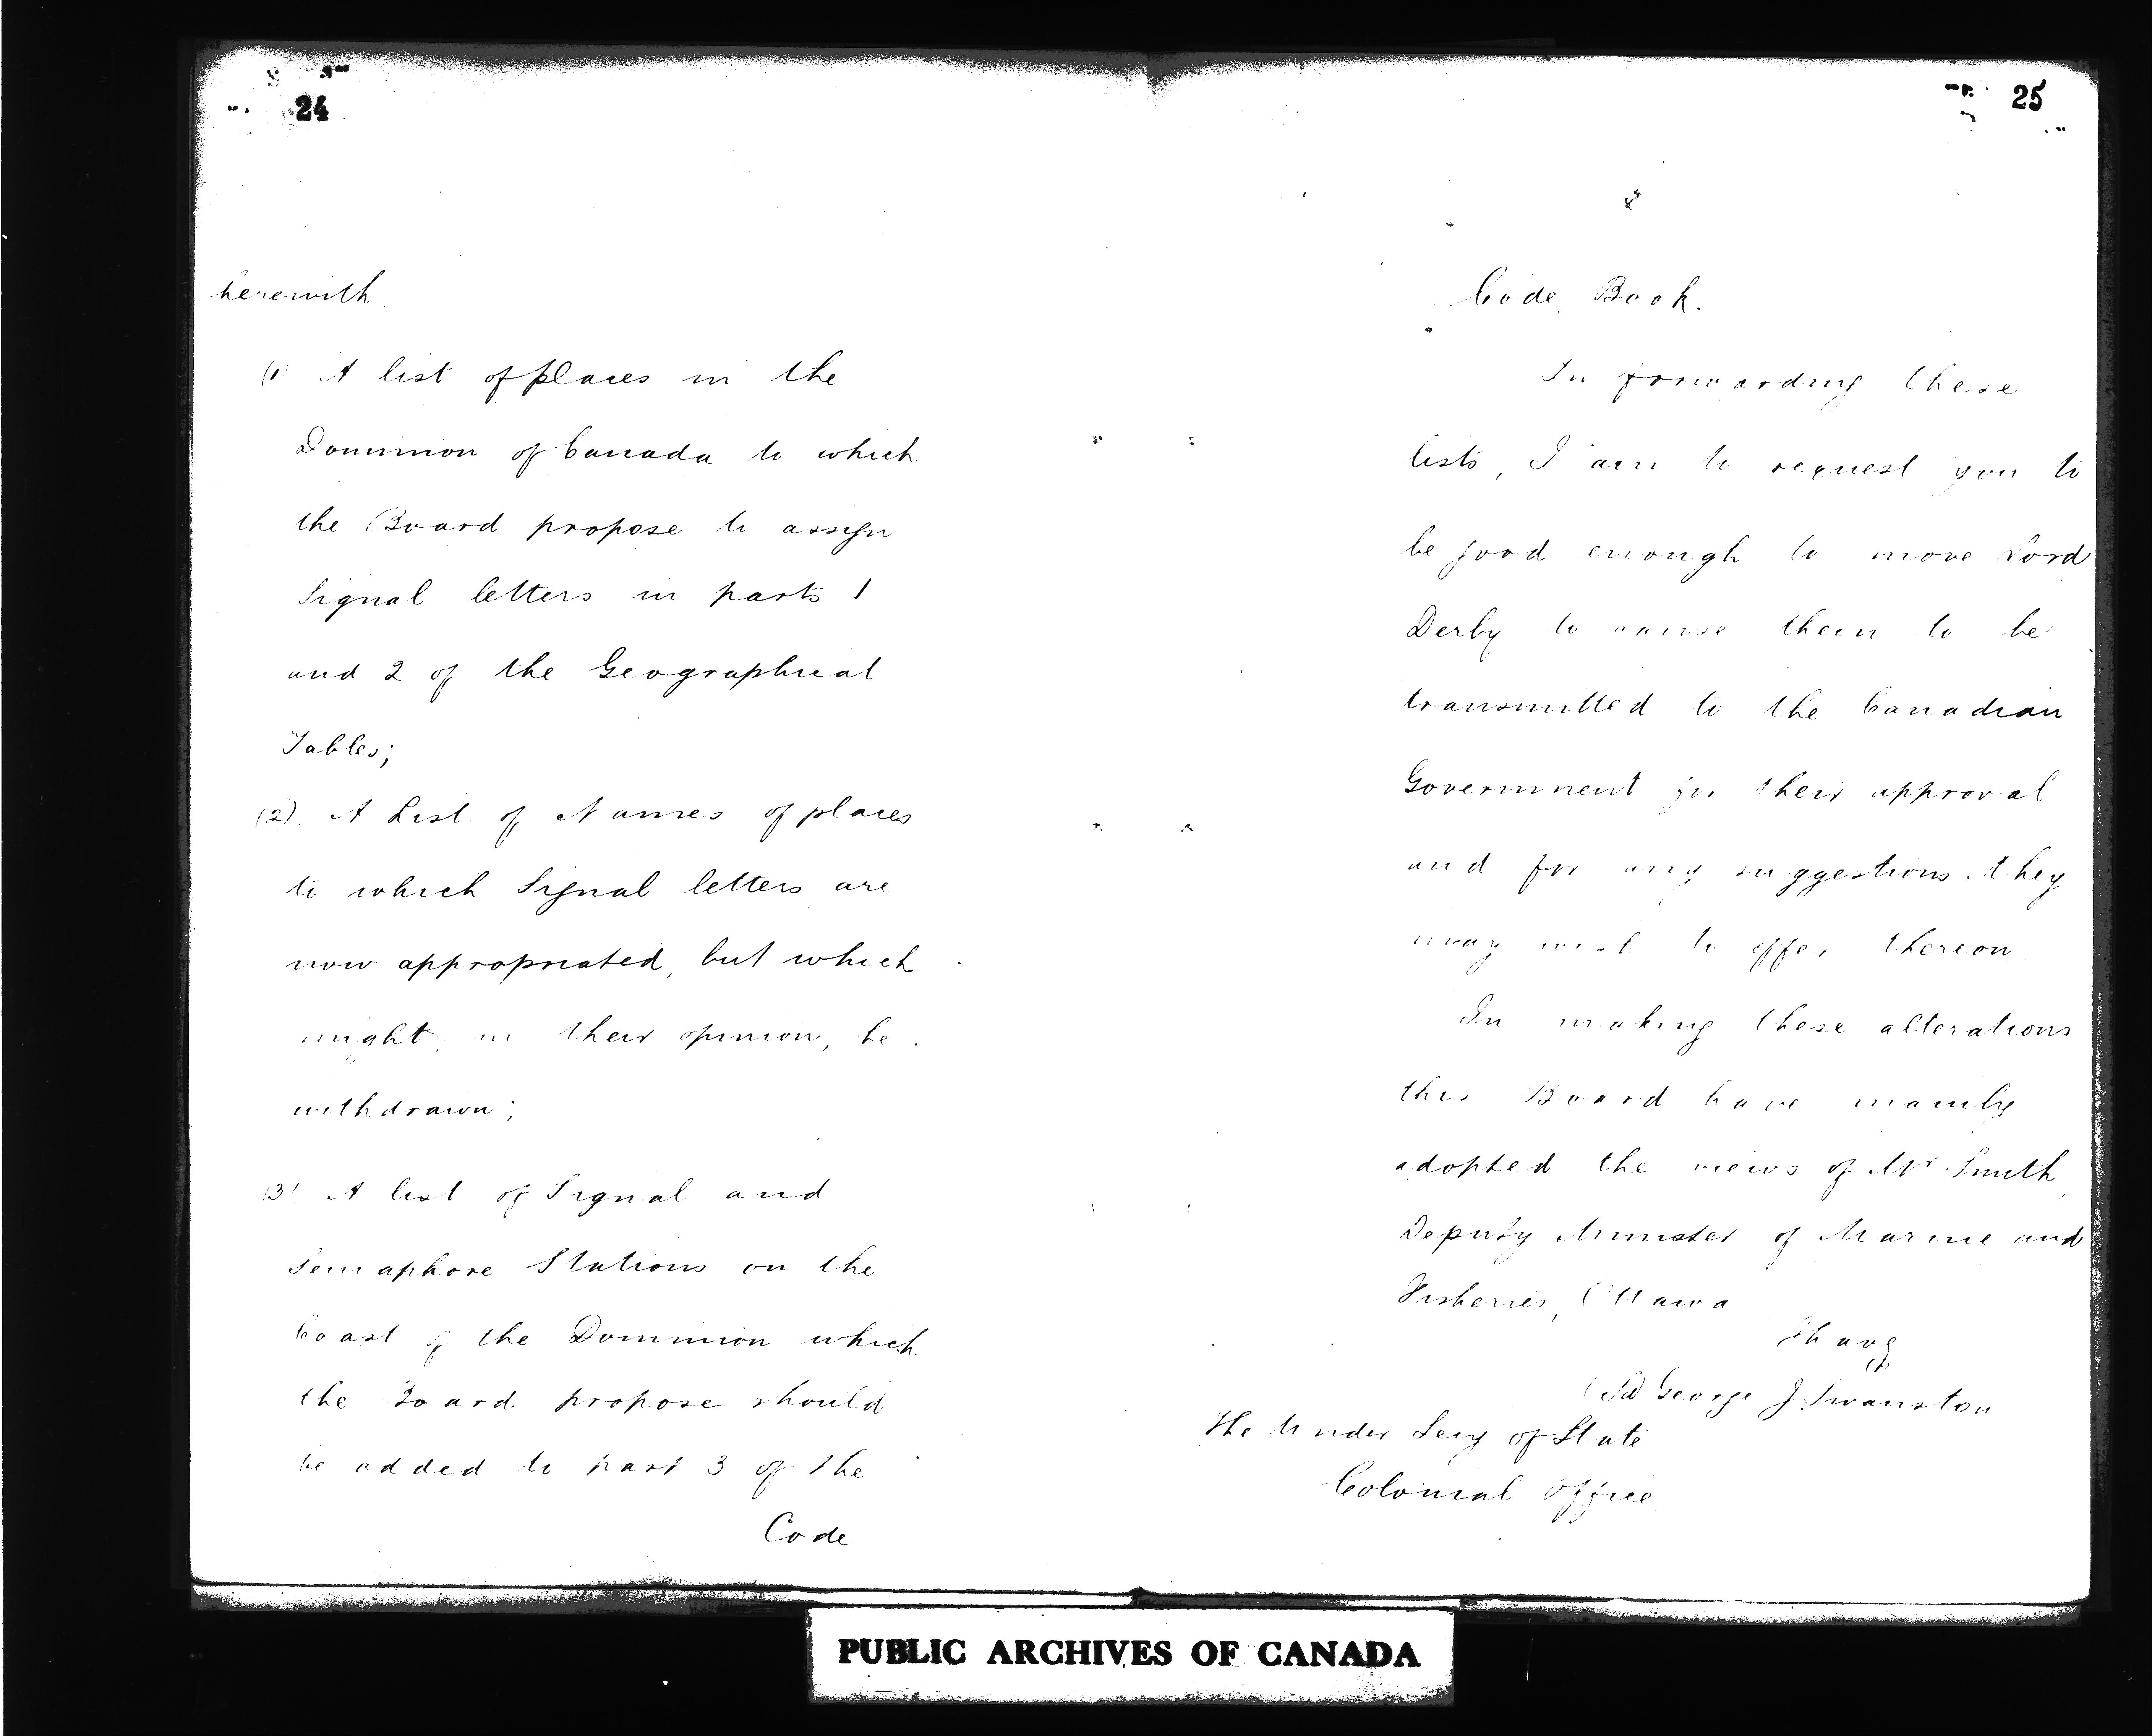 24
herewith
(1) A list of places in the
Dominion of Canada to which
the Board propose to assign
Signal letters in parts 1
and 2 of the Geographical
Tables;
(2). A List of Names of places
to which Signal letters are
now appropriated, but which
might, in their opinion, be
withdrawn;
(3) A list of Signal and
Semaphore Stations on the
Coast of the Dominion which
the Board propose should
be added to part 3 of the
Code
25
Code Book.
In forwarding these
lists, I am to request you to
be good enough to move Lord
Derby to cause them to be
transmitted to the Canadian
Government for their approval
and for any suggestions they
may wish to offer thereon
In making these alterations
this Board have mainly
adopted the views of Mr Smith
Deputy Minister of Marine and
Fisheries, Ottawa
I have
(Sd George J Swanston
The Under Secy of State
Colonial Office
PUBLIC ARCHIVES OF CANADA